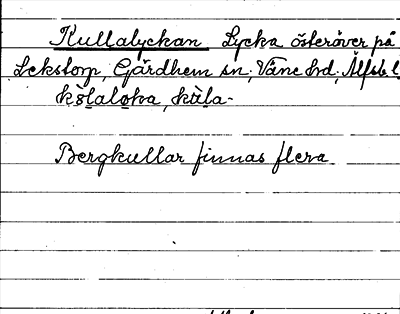 Kullalyckan Lycka österöver på
Lekstorp, Gärdhem sn, Väne hd, Älfsb. l.
Bergkullar finnas flera